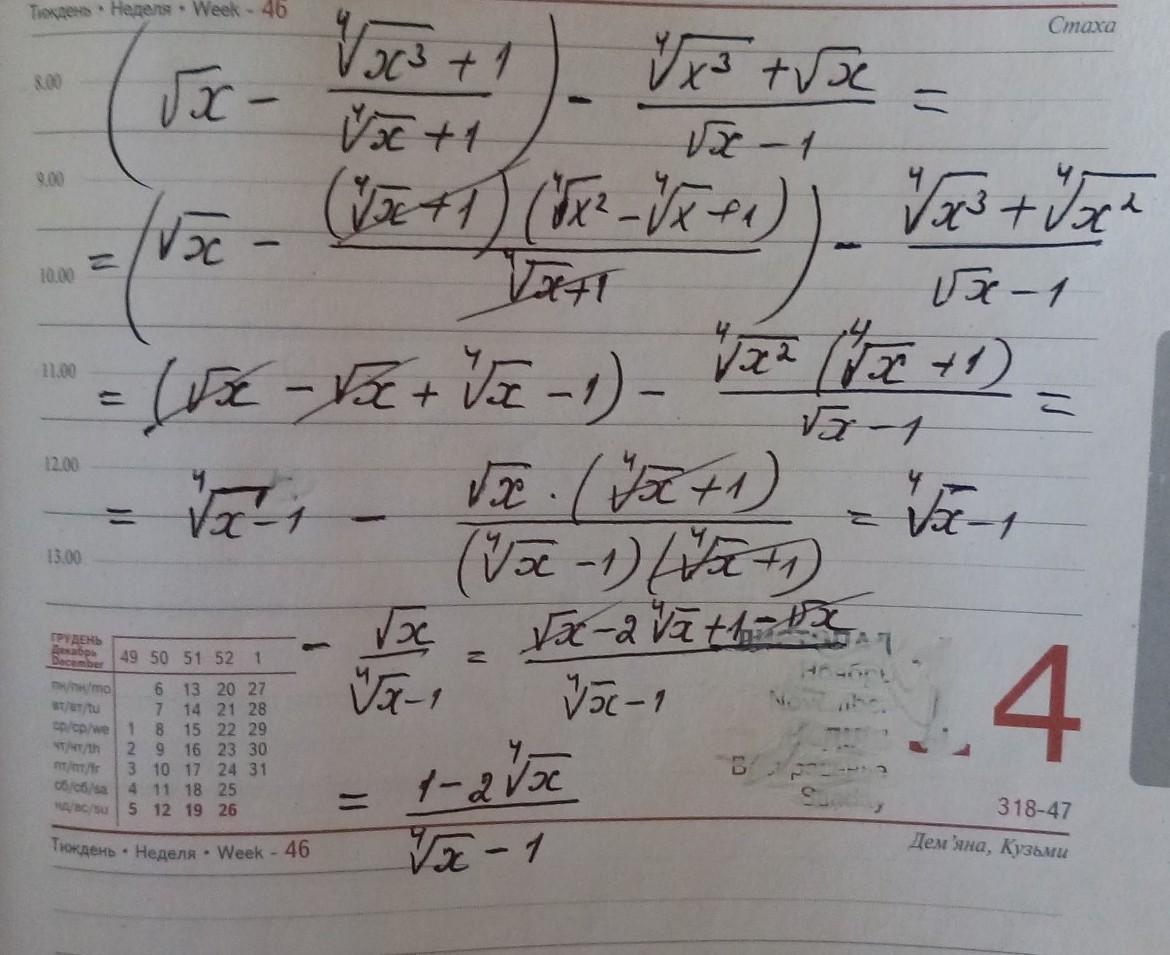 Тюждень • Неделя • Week - 46
Стаха
8.00
(√x − (∜x³ + 1)/(∜x + 1)) − (∜x³ + √x)/(√x − 1) =
9.00
= (√x − (∜x + 1)(∜x² − ∜x + 1)/(∜x + 1)) − (∜x³ + ∜x²)/(√x − 1)
10.00
11.00
= (√x − √x + ∜x − 1) − ∜x² (∜x + 1)/(√x − 1) =
12.00
= ∜x − 1 − √x · (∜x + 1)/((∜x − 1)(∜x + 1)) = ∜x − 1
13.00
− √x/(∜x − 1) = (√x − 2∜x + 1 − √x)/(∜x − 1)
= (1 − 2∜x)/(∜x − 1)
ГРУДЕНЬ
Декабрь
December
49 50 51 52 1
пн/пн/mo 6 13 20 27
вт/вт/tu 7 14 21 28
ср/ср/we 1 8 15 22 29
чт/чт/th 2 9 16 23 30
пт/пт/fr 3 10 17 24 31
сб/сб/sa 4 11 18 25
нд/вс/su 5 12 19 26
ЛИСТОПАД
Ноябрь
Sunday
4
318-47
Тюждень • Неделя • Week - 46
Дем'яна, Кузьми